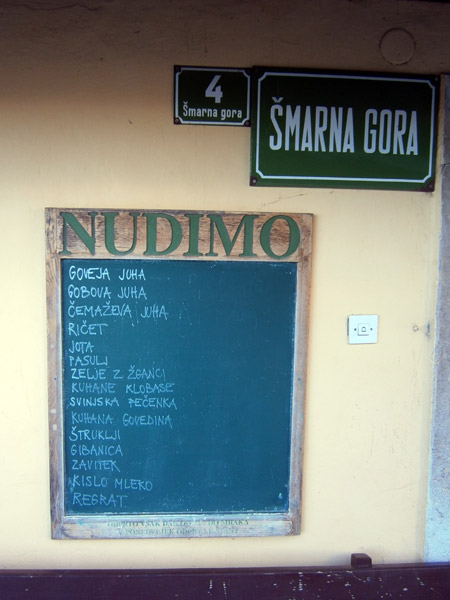 4
Šmarna gora
ŠMARNA GORA
NUDIMO
GOVEJA JUHA
GOBOVA JUHA
ČEMAŽEVA JUHA
RIČET
JOTA
PASULJ
ZELJE Z ŽGANCI
KUHANE KLOBASE
SVINJSKA PEČENKA
KUHANA GOVEDINA
ŠTRUKLJI
GIBANICA
ZAVITEK
KISLO MLEKO
REGRAT